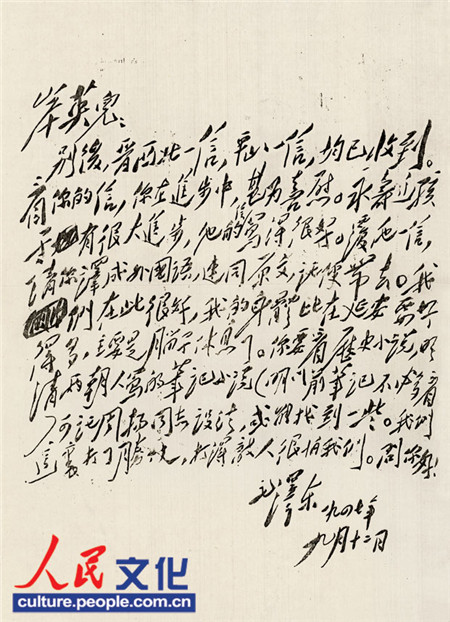 岸英兒：
別後，晋西北一信，平山一信，均已收到。
看你的信，你在進步中，甚為喜慰。永壽這孩
子有很大進步，他的信寫得很好。復他一信，
請你譯成外國語，連同原文，託便帶去。我
們在此很好，我的身體比在延安要好
得多，主要是腦子休息了。你要看歷史小說，明
清兩朝人寫的筆記小說（明以前筆記不必多看），
可託周揚同志設法，或能找到一些。我們
這裏打了勝仗，打得敵人很怕我們。問你好！
毛澤東
一九四七年
九月十二日
人民文化
culture.people.com.cn